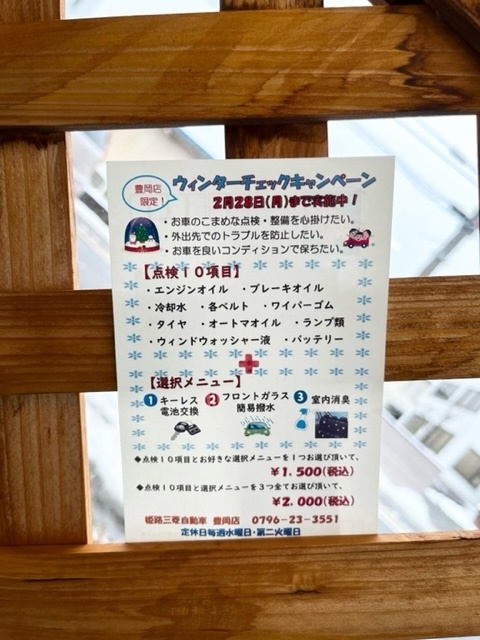 豊岡店
限定!
ウィンターチェックキャンペーン
2月28日(月)まで実施中!
・お車のこまめな点検・整備を心掛けたい。
・外出先でのトラブルを防止したい。
・お車を良いコンディションで保ちたい。
【点検10項目】
・エンジンオイル ・ブレーキオイル
・冷却水 ・各ベルト ・ワイパーゴム
・タイヤ ・オートマオイル ・ランプ類
・ウィンドウォッシャー液 ・バッテリー
【選択メニュー】
1 キーレス
電池交換
2 フロントガラス
簡易撥水
3 室内消臭
◆点検10項目とお好きな選択メニューを1つお選び頂いて、
¥1.500(税込)
◆点検10項目と選択メニューを3つ全てお選び頂いて、
¥2.000(税込)
姫路三菱自動車 豊岡店 0796-23-3551
定休日毎週水曜日・第二火曜日